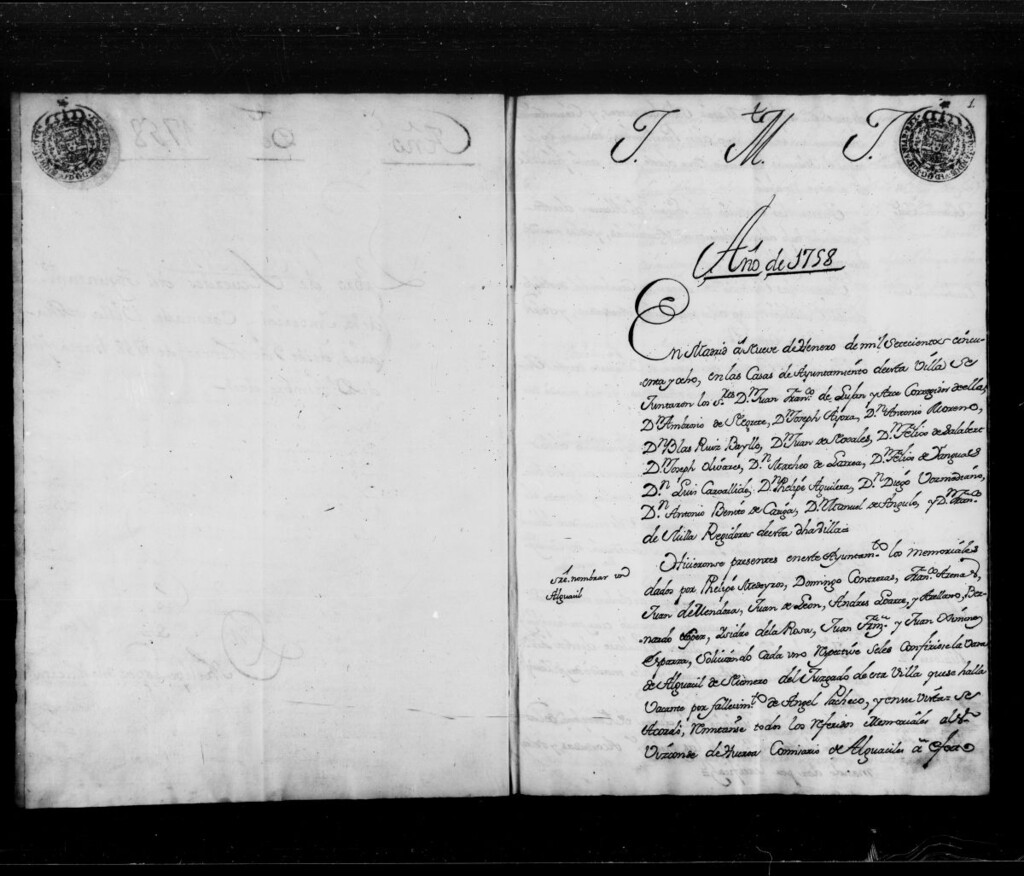 1.
J. M. J.
Año de 1758
En Madrid â Nueve de Henero de mil setecientos cincu-
enta y ocho, en las Casas de Ayuntamiento de esta Villa se
Juntaron los S.res D.n Juan Fran.co de Luján y Arce Corregidor de ella,
D.n Ambrosio de Negrete, D.n Joseph Ayora, D.n Antonio Moreno,
D.n Blas Ruiz Bayllo, D.n Juan de Novales, D.n Felix de Salabert
D.n Joseph Olivares, D.n Matheo de Larrea, D.n Felix de Yanguas
D.n Luis Carvallido, D.n Phelipe Aguilera, D.n Diego
D.n Antonio Benito de Cariga, D.n Manuel de Angulo, y D.n Fran.co
de Milla Regidores de esta dha Villa=
Sre. nombrar un
Alguacil
Hicieronse presentes en este Ayuntam.to los memoriales
dados por Phelipe Domingo Contreras, Fran.co
Juan de Mendoza, Juan de Leon, Andres y Arellano, Ber-
nardo Lopez, Isidro de la Rosa, Juan y Juan
Esparza, Solicitando cada uno respective seles Confiriese la Vara
de Alguacil de Numero del Juzgado de esta Villa que se halla
Vacante por fallecim.to de Angel Pacheco, y en su Vista= Se
Acordó, Remitanse todos los referidos Memoriales al S.r
Vizconde de Huerta Comisario de Alguaciles â efecto